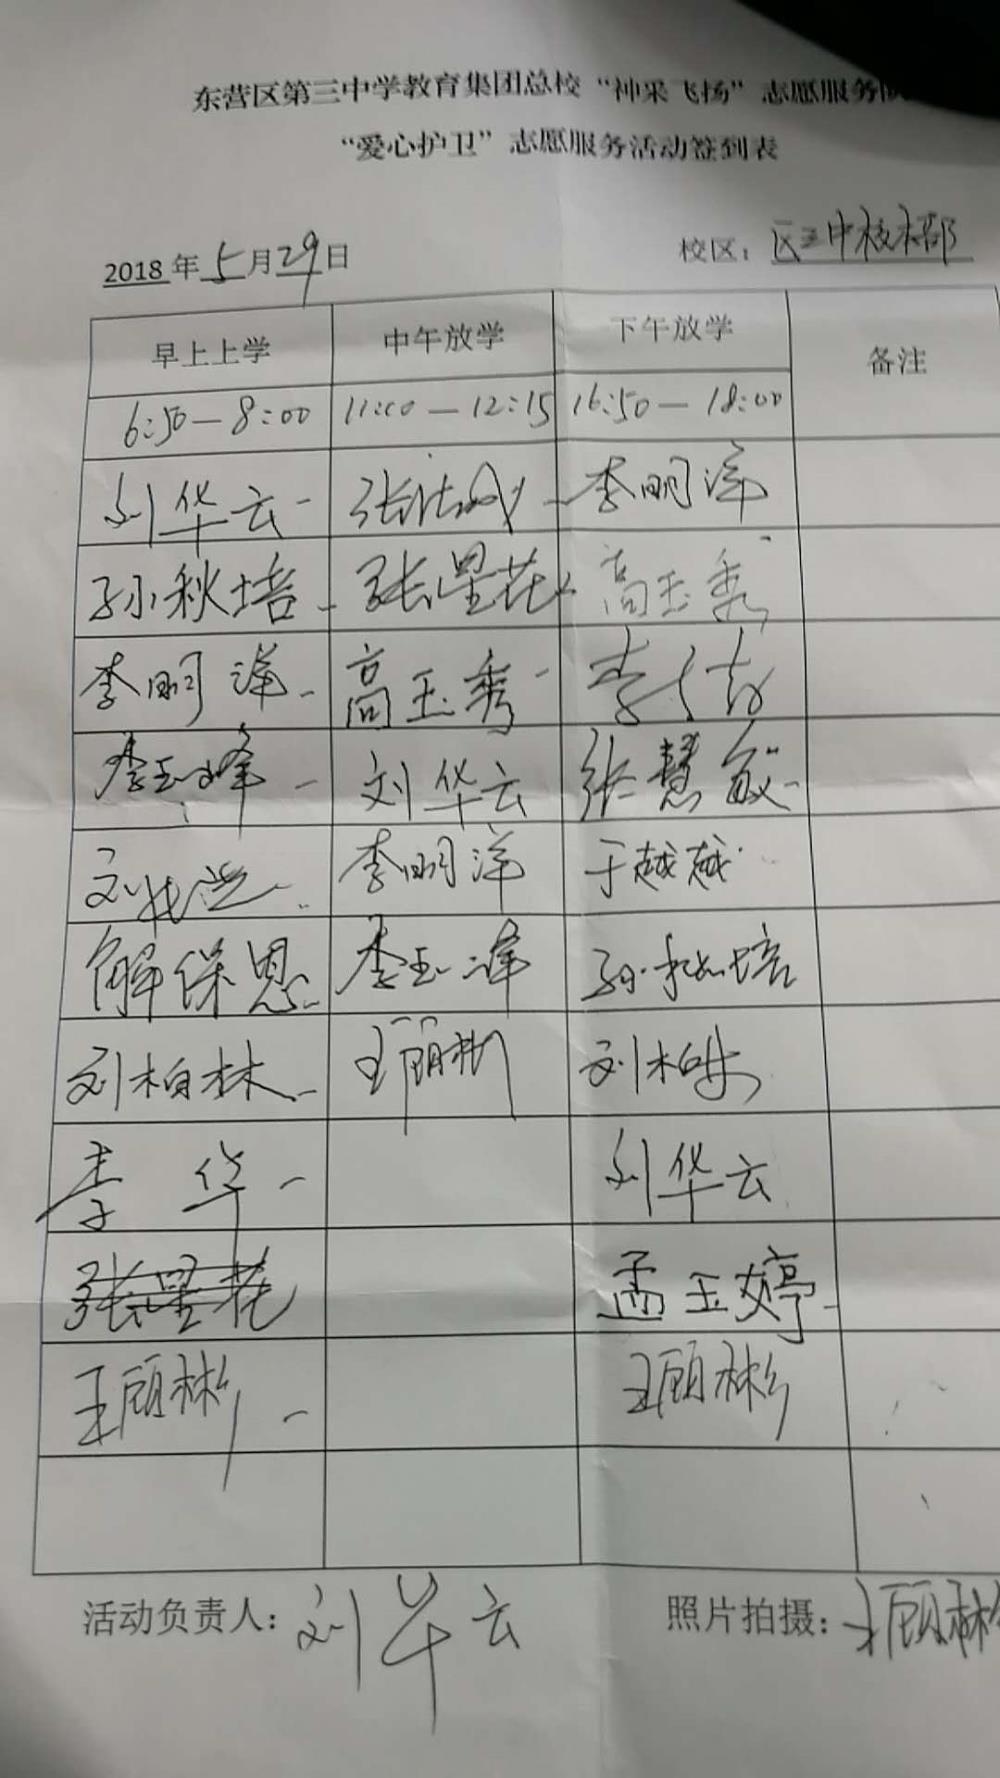 东营区第三中学教育集团总校“神采飞扬”志愿服务队
“爱心护卫”志愿服务活动签到表
2018年5月29日 校区：区三中校本部
早上上学 中午放学 下午放学 备注
6:50—8:00 11:00—12:15 16:50—18:00
刘华云 李明洋
孙秋培 张星花 高玉秀
李明洋 高玉秀
李玉峰 刘华云 张慧敏
李明洋 于越越
解保恩 李玉峰 孙秋培
刘柏林 王顾彬 刘柏林
李华 刘华云
张星花 孟玉婷
王顾彬 王顾彬
活动负责人：刘华云 照片拍摄：王顾彬